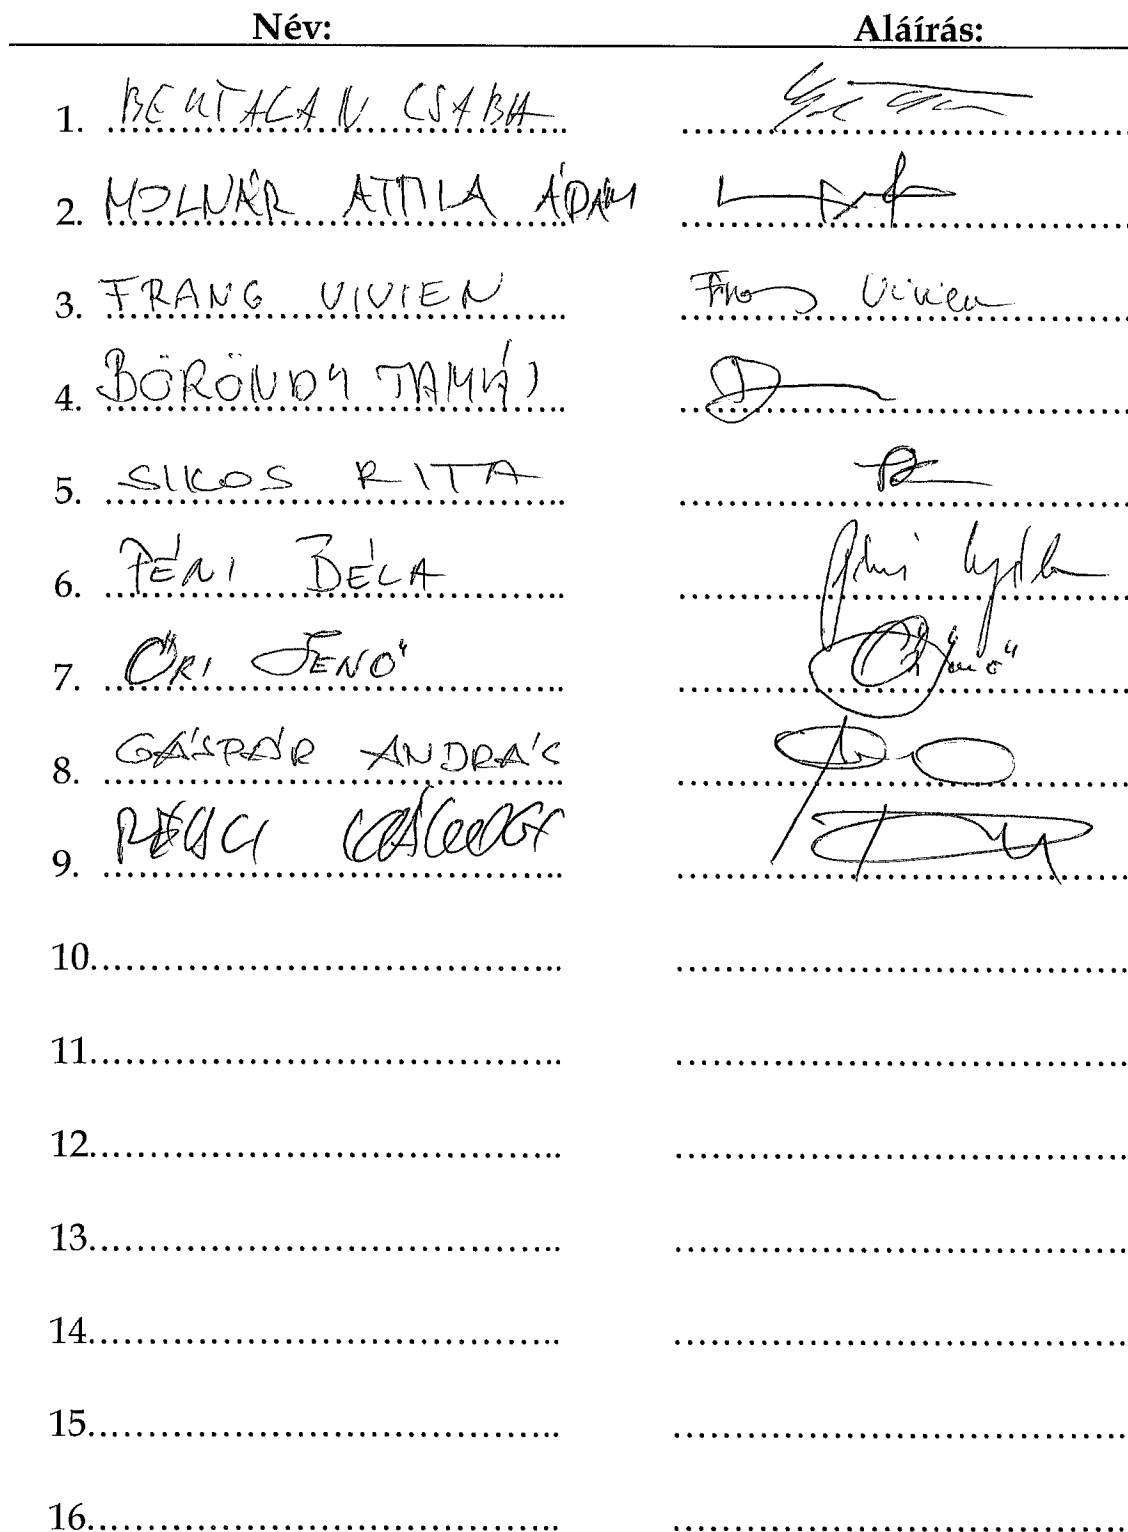 Név: Aláírás:
1. BERTALAN CSABA
2. MOLNÁR ATTILA ÁDÁM
3. FRANG VIVIEN Frang Vivien
4. BÖRÖNDY TAMÁS
5. SIKOS RITA
6. PÉNI BÉLA
7. ŐRI JENŐ Őri Jenő
8. GÁSPÁR ANDRÁS
9.
10.
11.
12.
13.
14.
15.
16.